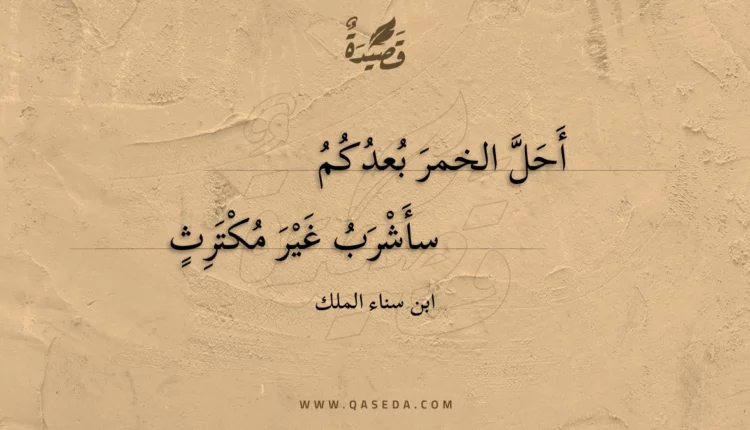 قَصِيْدَةٌ
أَحَلَّ الخمرَ بُعدُكُمُ
سأَشْرَبُ غَيْرَ مُكْتَرِثٍ
ابن سناء الملك
WWW.QASEDA.COM